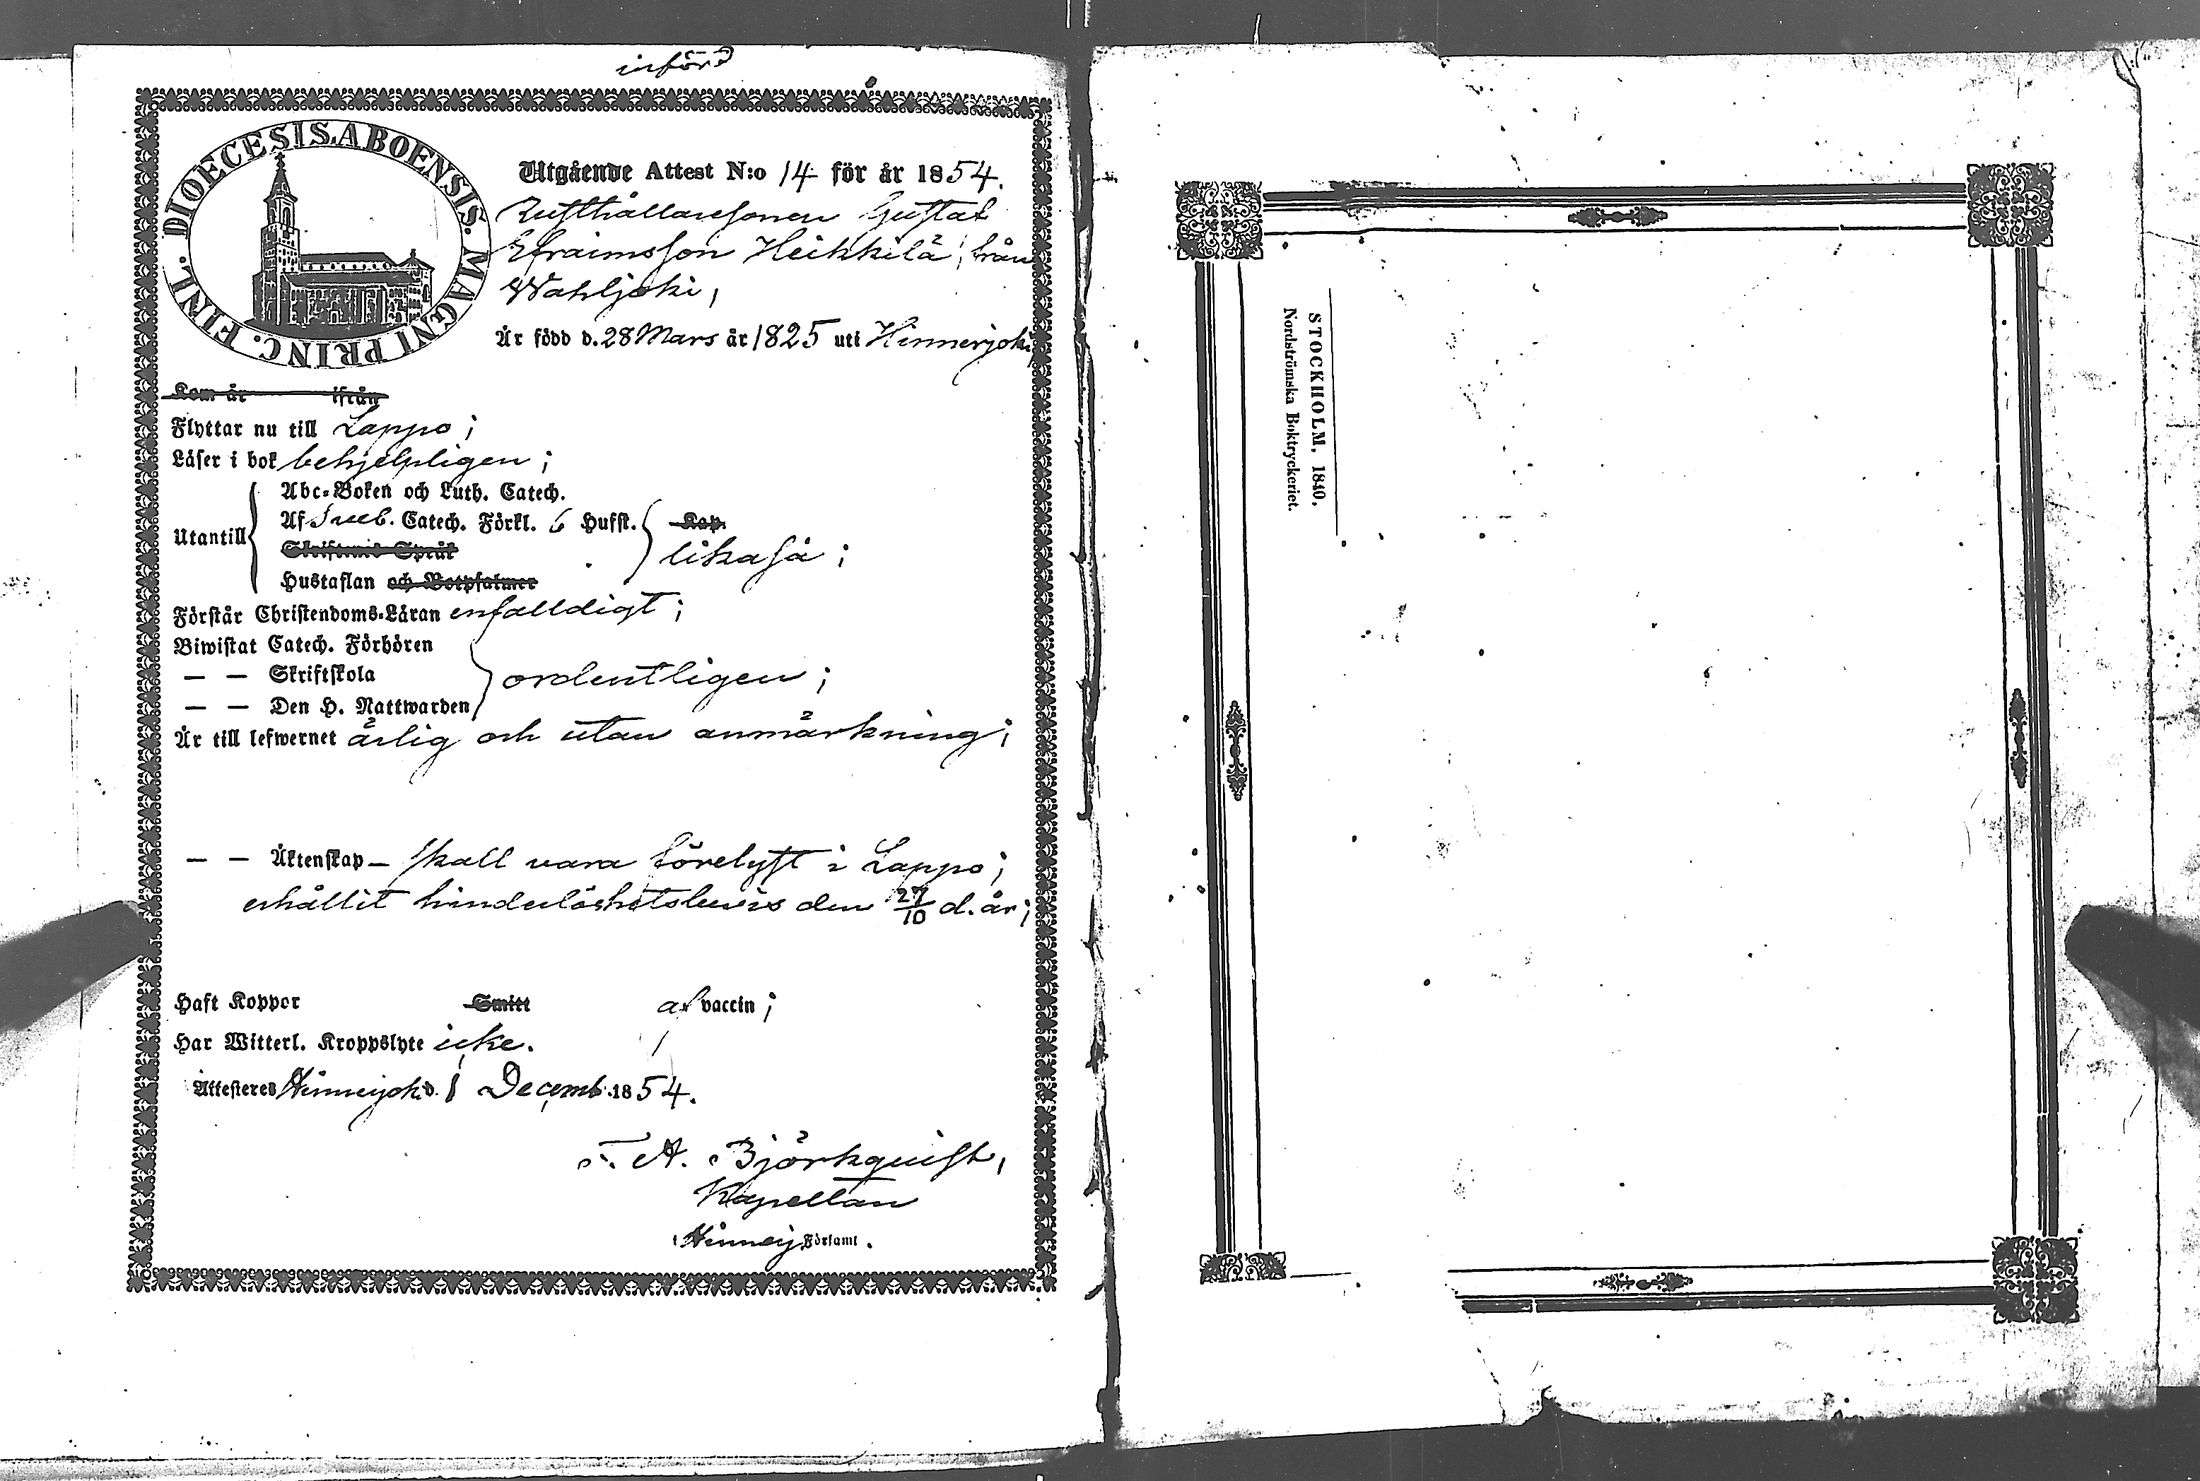 införd
DIOECESIS ABOENSIS. MAGNI PRINC. FINL.
Utgående Attest N:o 14 för år 1854.
Rusthållaresonen Gustaf
Efraimsson Heikkilä, från
Wahljoki,
Är född d. 28 Mars år 1825 uti Hinnerjoki,
Kom år ifrån
Flyttar nu till Lappo;
Läser i bok behjelpligen;
Abc-Boken och Luth. Catech.
Af Sveb. Catech. Förkl. 6 Hufst. Kap.
Utantill
Skriftenes Språk
likaså;
Hustaflan och Botpsalmer
Förstår Christendoms-Läran enfalldigt;
Biwistat Catech. Förhören
— — Skriftskola ordentligen;
— — Den H. Nattwarden
Är till lefwernet ärlig och utan anmärkning;
— — Äktenskap – skall vara förelyst i Lappo;
erhållit hinderlöshetsbevis den 27/10 d. år;
Haft Koppor Smitt af vaccin;
Har Witterl. Kroppslyte icke.
Attesteres Hinnerjoki d. 1 Decemb. 1854.
F. A. Björkquist,
Kapellan
i Hinnerj. Församl.
STOCKHOLM, 1840.
Nordströmska Boktryckeriet.